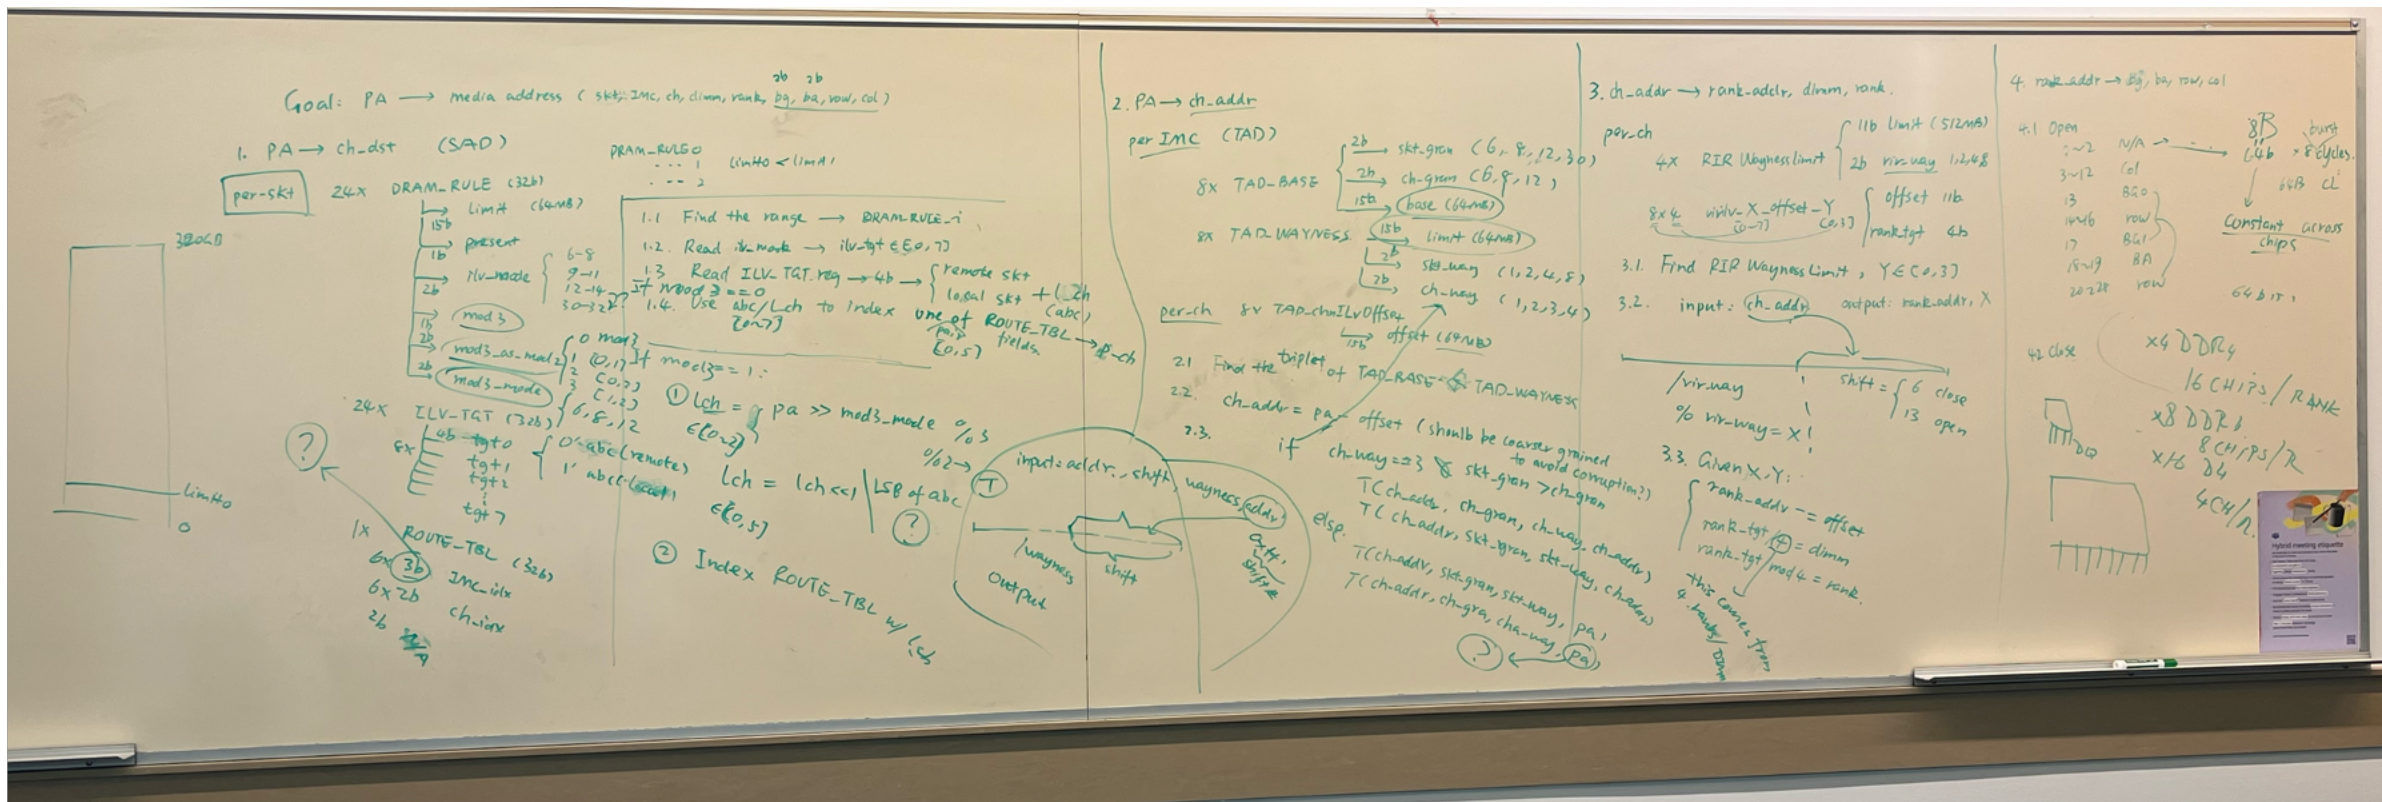 Goal: PA → media address ( skt, IMC, ch, dimm, rank, bg, ba, row, col )
2b 2b
1. PA → ch_dst (SAD)
per-skt
24x DRAM_RULE (32b)
15b limit (64MB)
1b present
2b ilv_mode
6-8
9-11
12-14
30-32
1b mod3
2b mod3_as_mod2
0 mod3
1 (0,1)
2 (0,2)
3 (1,2)
2b mod3_mode
6, 8, 12
24x ILV_TGT (32b)
8x
4b tgt0
tgt1
tgt2
tgt7
0' abc (remote)
1' abc (local)
1x ROUTE_TBL (32b)
6x 3b Imc_idx
6x 2b ch_idx
2b
?
limit0
0
DRAM_RULE 0
... 1
... 2
limit0 < limit1
1.1 Find the range → DRAM_RULE_i
1.2. Read ilv_mode → ilv_tgt ∈ [0, 7]
1.3 Read ILV_TGT reg → 4b →
remote skt
local skt + 2b
(abc)
If mod3 == 0
1.4. Use abc/Lch to index one of ROUTE_TBL → p-ch
[0~7]
pair
fields
[0,5]
If mod3 == 1:
① Lch = pa >> mod3_mode %3
∈ [0~2]
%2 →
Lch = lch << 1 | LSB of abc
∈ [0,5]
?
② Index ROUTE_TBL w/ Lch
2. PA → ch_addr
per IMC (TAD)
8x TAD_BASE
2b → skt-gran (6, 8, 12, 30)
2b → ch-gran (6, 8, 12)
15b → base (64MB)
8x TAD_WAYNESS
15b limit (64MB)
2b skt_way (1, 2, 4, 8)
2b ch_way (1, 2, 3, 4)
per-ch 8x TAD_chnILvOffset
15b → offset (64MB)
2.1 Find the triplet of TAD_BASE & TAD_WAYNESS
2.2. ch_addr = pa - offset (should be coarser grained
to avoid corruption?)
2.3. if ch_way == 3 & skt_gran > ch_gran
T(ch_addr, ch_gran, ch_way, ch_addr)
T(ch_addr, skt_gran, skt_way, ch_addr)
else
T(ch_addr, skt_gran, skt_way, pa)
T(ch_addr, ch_gra, cha_way, pa)
?
T
input: addr, shift, wayness, addr'
/wayness
shift
output
3. ch_addr → rank_addr, dimm, rank.
per_ch
4x RIR Wayness limit
11b limit (512MB)
2b rir_way 1,2,4,8
8x4 ririlv_X_offset_Y
[0-7] [0,3]
offset 11b
rank_tgt 4b
3.1. Find RIR Wayness Limit, Y ∈ [0,3]
3.2. input: ch_addr output: rank_addr, X
/rir_way
% rir-way = X!
shift =
6 close
13 open
3.3. Given X, Y:
rank_addr -= offset
rank_tgt /4 = dimm
rank_tgt mod 4 = rank.
this comes from
4 ranks/DIMM
4. rank_addr → bg, ba, row, col
4.1 Open
~2 N/A →
3~12 Col
13 BG0
14~16 row
17 BG1
18~19 BA
20~28 row
8B
64b
burst
x 8 cycles.
64B CL
Constant across
chips
4.2 close
DQ
x4 DDR4
16 CHIPS / RANK
8 CHIPS/R
x16 D4
4 CH/R.
Hybrid meeting etiquette